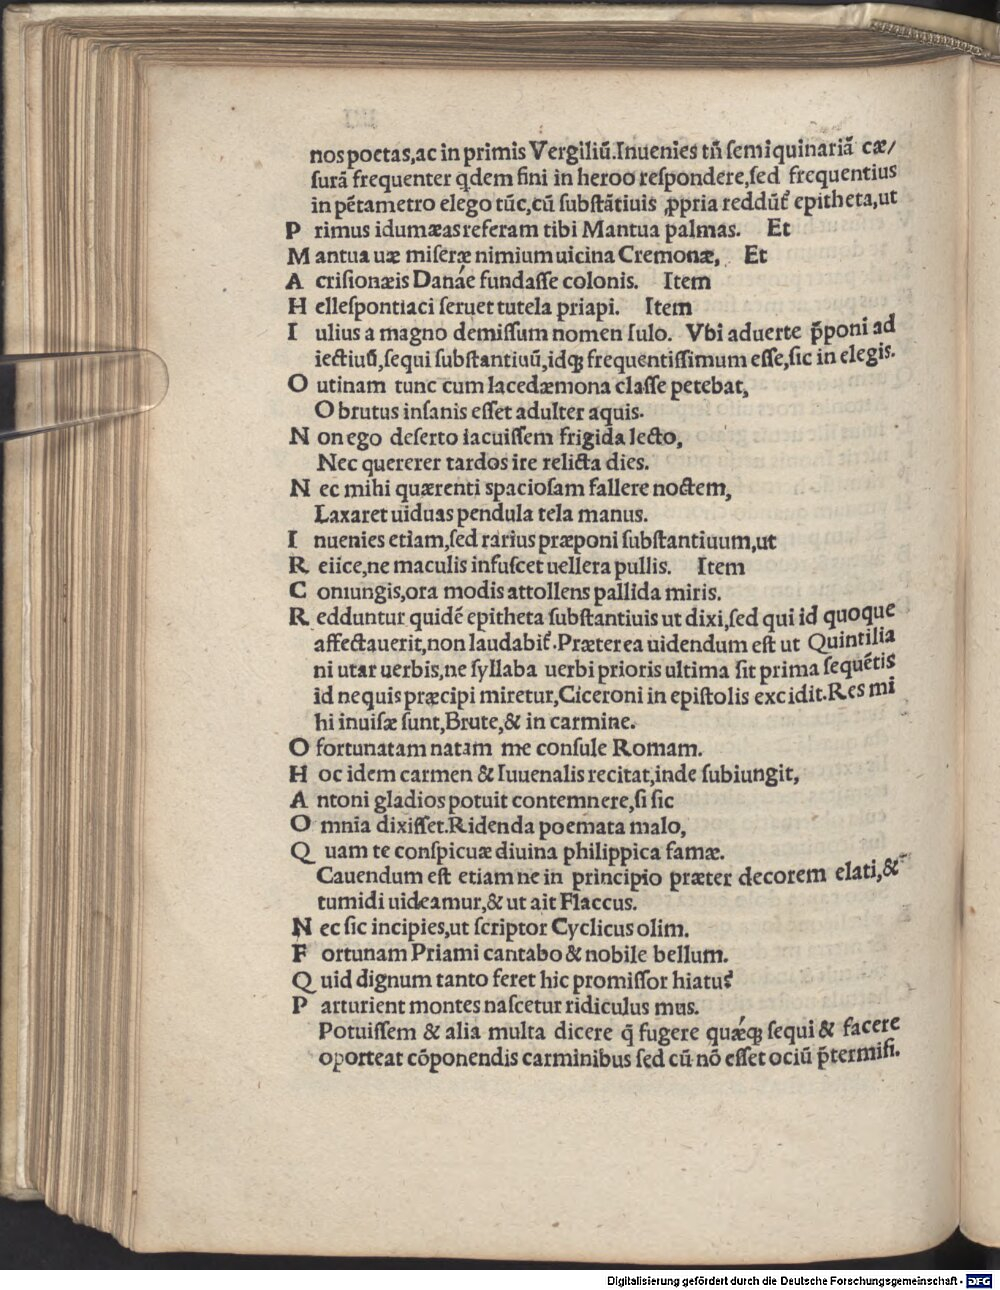 nos poetas,ac in primis Vergiliũ.Inuenies tñ semiquinariã cæ/
surã frequenter qdem fini in heroo respondere,sed frequentius
in pẽtametro elego tũc,cũ substãtiuis ꝓpria reddũt᷑ epitheta,ut
P rimus idumæas referam tibi Mantua palmas. Et
M antua uæ miseræ nimium uicina Cremonæ, Et
A crisionæis Danáe fundasse colonis. Item
H ellespontiaci seruet tutela priapi. Item
I ulius a magno demissum nomen Iulo. Vbi aduerte p̃poni ad
iectiuũ,sequi substantiuũ,idqꝫ frequentissimum esse,sic in elegis.
O utinam tunc cum lacedæmona classe petebat,
O brutus insanis esset adulter aquis.
N on ego deserto iacuissem frigida lecto,
Nec quererer tardos ire relicta dies.
N ec mihi quærenti spaciosam fallere noctem,
Laxaret uiduas pendula tela manus.
I nuenies etiam,sed rarius præponi substantiuum,ut
R eiice,ne maculis infuscet uellera pullis. Item
C oniungis,ora modis attollens pallida miris.
R edduntur quidẽ epitheta substantiuis ut dixi,sed qui id quoque
affectauerit,non laudabit᷑.Præterea uidendum est ut Quintilia
ni utar uerbis,ne syllaba uerbi prioris ultima sit prima sequẽtis
id nequis præcipi miretur,Ciceroni in epistolis excidit.Res mi
hi inuisæ sunt,Brute,& in carmine.
O fortunatam natam me consule Romam.
H oc idem carmen & Iuuenalis recitat,inde subiungit,
A ntoni gladios potuit contemnere,si sic
O mnia dixisset.Ridenda poemata malo,
Q uam te conspicuæ diuina philippica famæ.
Cauendum est etiam ne in principio præter decorem elati,&
tumidi uideamur,& ut ait Flaccus.
N ec sic incipies,ut scriptor Cyclicus olim.
F ortunam Priami cantabo & nobile bellum.
Q uid dignum tanto feret hic promissor hiatu?
P arturient montes nascetur ridiculus mus.
Potuissem & alia multa dicere q̃ fugere quǽqꝫ sequi & facere
oporteat cõponendis carminibus sed cũ nõ esset ociũ p̃termisi.
Digitalisierung gefördert durch die Deutsche Forschungsgemeinschaft - DFG